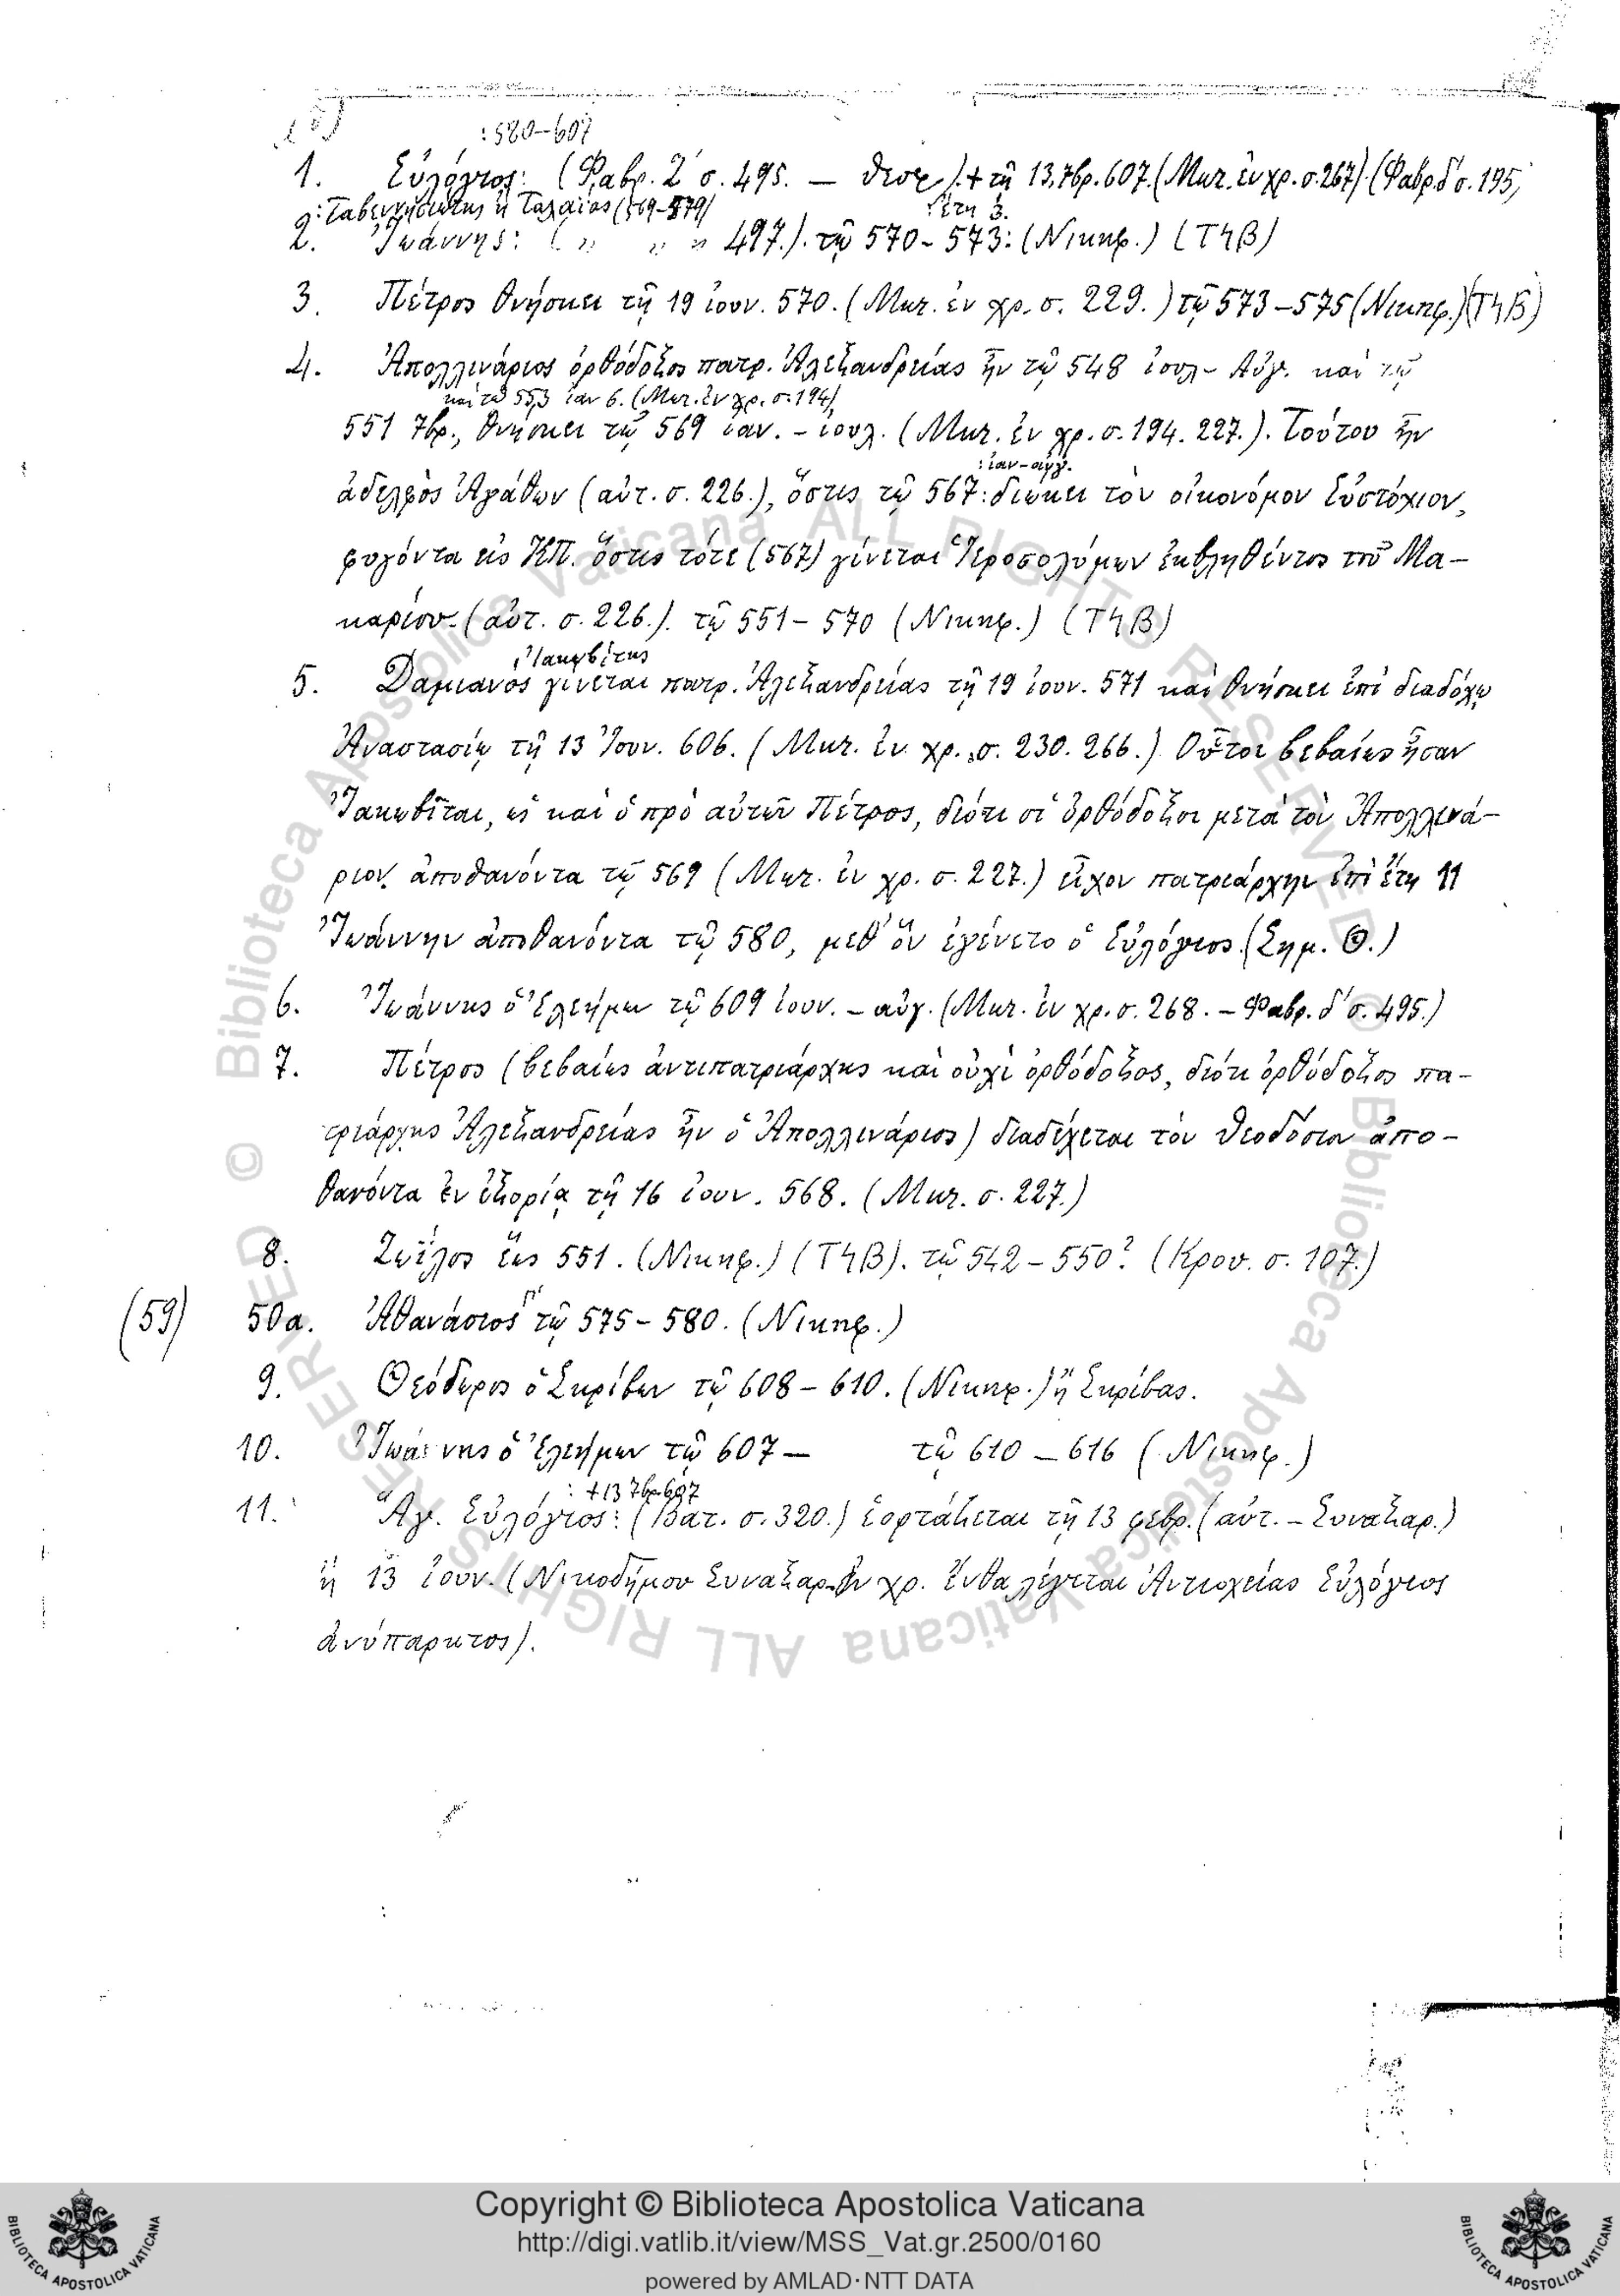 :580-607
1. Εὐλόγιος: (Φαβρ. 2´ σ. 495. — ). + τῇ 13.7βρ. 607. (Μικ. ἐν χρ. σ. 267). (Φαβρ. δ´ σ. 195)
ὁ: Ταβεννησιώτης ἢ Ταλαίας (569-579)
:ἔτη 3.
2. Ἰωάννης: ( „ „ „ 497.). τῷ 570-573: (Νικηφ.) (ΤϟΒ)
3. Πέτρος θνήσκει τῇ 19 ἰουν. 570. (Μικ. ἐν χρ. σ. 229.) τῷ 573-575 (Νικηφ.) (ΤϟΒ)
4. Ἀπολλινάριος ὀρθόδοξος πατρ. Ἀλεξανδρείας ἦν τῷ 548 ἰουλ- Αὐγ. καὶ τῷ
καὶ τῷ 553 ἰαν 6. (Μικ. ἐν χρ. σ. 194),
551 7βρ., θνήσκει τῷ 569 ἰαν. - ἰουλ. (Μικ. ἐν χρ. σ. 194. 227.). Τούτου ἦν
:ἰαν-αὐγ.
ἀδελφὸς Ἀγάθων (αὐτ. σ. 226.), ὅστις τῷ 567: διώκει τὸν οἰκονόμον Εὐστόχιον,
φυγόντα εἰς ΚΠ. ὅστις τότε (567) γίνεται Ἱεροσολύμων ἐκβληθέντος τοῦ Μα-
καρίου. (αὐτ. σ. 226.). τῷ 551-570 (Νικηφ.) (ΤϟΒ)
Ἰακωβίτης
5. Δαμιανὸς γίνεται πατρ. Ἀλεξανδρείας τῇ 19 ἰουν. 571 καὶ θνήσκει ἐπὶ διαδόχῳ
Ἀναστασίῳ τῇ 13 Ἰουν. 606. (Μικ. ἐν χρ. σ. 230. 266.) Οὗτοι βεβαίως ἦσαν
Ἰακωβῖται, ὡς καὶ ὁ πρὸ αὐτῶν Πέτρος, διότι οἱ ὀρθόδοξοι μετὰ τὸν Ἀπολλινά-
ριον ἀποθανόντα τῷ 569 (Μικ. ἐν χρ. σ. 227.) εἶχον πατριάρχην ἐπὶ ἔτη 11
Ἰωάννην ἀποθανόντα τῷ 580, μεθ᾽ ὃν ἐγένετο ὁ Εὐλόγιος. (Σημ. Θ.)
6. Ἰωάννης ὁ Ἐλεήμων τῷ 609 ἰουν. - αὐγ. (Μικ. ἐν χρ. σ. 268. - Φαβρ. δ´ σ. 495.)
7. Πέτρος (βεβαίως ἀντιπατριάρχης καὶ οὐχὶ ὀρθόδοξος, διότι ὀρθόδοξος πα-
τριάρχης Ἀλεξανδρείας ἦν ὁ Ἀπολλινάριος) διαδέχεται τὸν Θεοδόσιον ἀπο-
θανόντα ἐν ἐξορίᾳ τῇ 16 ἰουν. 568. (Μικ. σ. 227.)
8. Ζωΐλος ἕως 551. (Νικηφ.) (ΤϟΒ). τῷ 542-550? (Κρον. σ. 107.)
(59) 50a. Ἀθανάσιος τῷ 575-580. (Νικηφ.)
9. Θεόδωρος ὁ Σκρίβων τῷ 608-610. (Νικηφ.) ἢ Σκρίβας.
10. Ἰωάννης ὁ Ἐλεήμων τῷ 607- τῷ 610-616 (Νικηφ.)
: +13 7βρ. 607
11. Ἅγ. Εὐλόγιος: (Βατ. σ. 320.) ἑορτάζεται τῇ 13 φεβρ. (αὐτ. - Συναξαρ.)
ἢ 13 ἰουν. (Νικοδήμου Συναξαρ. ἐν χρ. ἔνθα λέγεται Ἀντιοχείας Εὐλόγιος
ἀνύπαρκτος).
© Biblioteca Apostolica Vaticana ALL RIGHTS RESERVED
© Biblioteca Apostolica Vaticana ALL RIGHTS RESERVED
Copyright © Biblioteca Apostolica Vaticana
http://digi.vatlib.it/view/MSS_Vat.gr.2500/0160
powered by AMLAD·NTT DATA
BIBLIOTECA APOSTOLICA VATICANA
BIBLIOTECA APOSTOLICA VATICANA